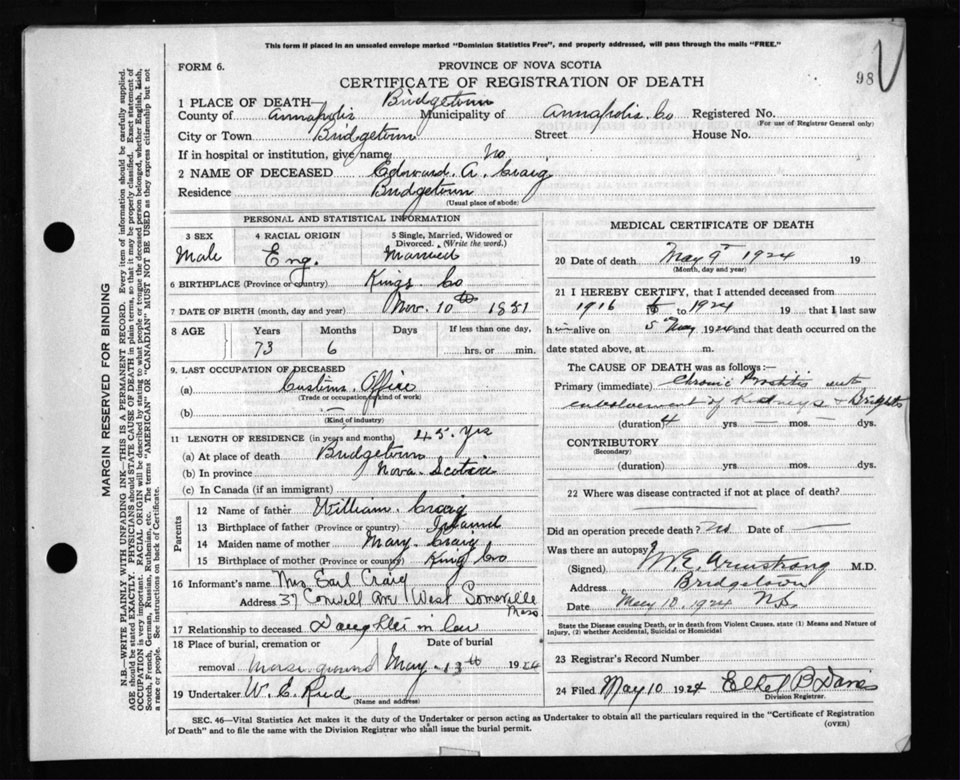 This form if placed in an unsealed envelope marked "Dominion Statistics Free", and properly addressed, will pass through the mails "FREE."
FORM 6.
PROVINCE OF NOVA SCOTIA
98
CERTIFICATE OF REGISTRATION OF DEATH
1 PLACE OF DEATH— Bridgetown
County of Annapolis Municipality of Annapolis. Co Registered No.
(For use of Registrar General only)
City or Town Bridgetown Street House No.
If in hospital or institution, give name No
2 NAME OF DECEASED Edward. A. Craig
Residence Bridgetown
(Usual place of abode)
PERSONAL AND STATISTICAL INFORMATION
3 SEX 4 RACIAL ORIGIN 5 Single, Married, Widowed or Divorced. (Write the word.)
Male Eng. Married
6 BIRTHPLACE (Province or country) Kings. Co
7 DATE OF BIRTH (month, day and year) Nov. 10th 1851
8 AGE Years Months Days If less than one day,
73 6 hrs. or min.
9. LAST OCCUPATION OF DECEASED
(a) Customs. Office
(Trade or occupation or kind of work)
(b) —
(Kind of industry)
11 LENGTH OF RESIDENCE (in years and months) 45. Yrs
(a) At place of death Bridgetown
(b) In province Nova. Scotia
(c) In Canada (if an immigrant)
Parents
12 Name of father William. Craig
13 Birthplace of father (Province or country) Ireland
14 Maiden name of mother Mary. Craig
15 Birthplace of mother (Province or country) King Co
16 Informant's name Mrs Earl Craig
Address 37 Conwell Ave West Somerville Mass
17 Relationship to deceased Daughter in law
18 Place of burial, cremation or removal Date of burial
May. 13th 1924
19 Undertaker W. E. Reed
(Name and address)
MEDICAL CERTIFICATE OF DEATH
20 Date of death May 9th 1924 19
(Month, day and year)
21 I HEREBY CERTIFY, that I attended deceased from
1916 to 1924 19 that I last saw
him alive on 5th May 1924 and that death occurred on the
date stated above, at m.
The CAUSE OF DEATH was as follows:—
Primary (immediate) Chronic Prostitis with
involvement of Kidneys + Brights
(duration) 4 yrs. — mos. — dys.
CONTRIBUTORY
(Secondary)
(duration) yrs. mos. dys.
22 Where was disease contracted if not at place of death?
Did an operation precede death? No Date of —
Was there an autopsy?
(Signed) W. E. Armstrong M.D.
Address Bridgetown
Date May 10, 1924 N.S.
State the Disease causing Death, or in death from Violent Causes, state (1) Means and Nature of Injury, (2) whether Accidental, Suicidal or Homicidal
23 Registrar's Record Number
24 Filed May 10 1924 Ethel B Davis
Division Registrar.
SEC. 46—Vital Statistics Act makes it the duty of the Undertaker or person acting as Undertaker to obtain all the particulars required in the "Certificate of Registration
of Death" and to file the same with the Division Registrar who shall issue the burial permit.
(OVER)
MARGIN RESERVED FOR BINDING
N.B.—WRITE PLAINLY WITH UNFADING INK—THIS IS A PERMANENT RECORD. Every item of information should be carefully supplied.
AGE should be stated EXACTLY. PHYSICIANS should STATE CAUSE OF DEATH in plain terms, so that it may be properly classified. Exact statement of
OCCUPATION is very important. RACIAL ORIGIN will be described by stating to what people or tongue the deceased person belonged, whether English, Irish,
Scotch, French, German, Russian, Ruthenian, etc. The terms "AMERICAN" OR "CANADIAN" MUST NOT BE USED as they express citizenship but not
a race or people. See instructions on back of Certificate.